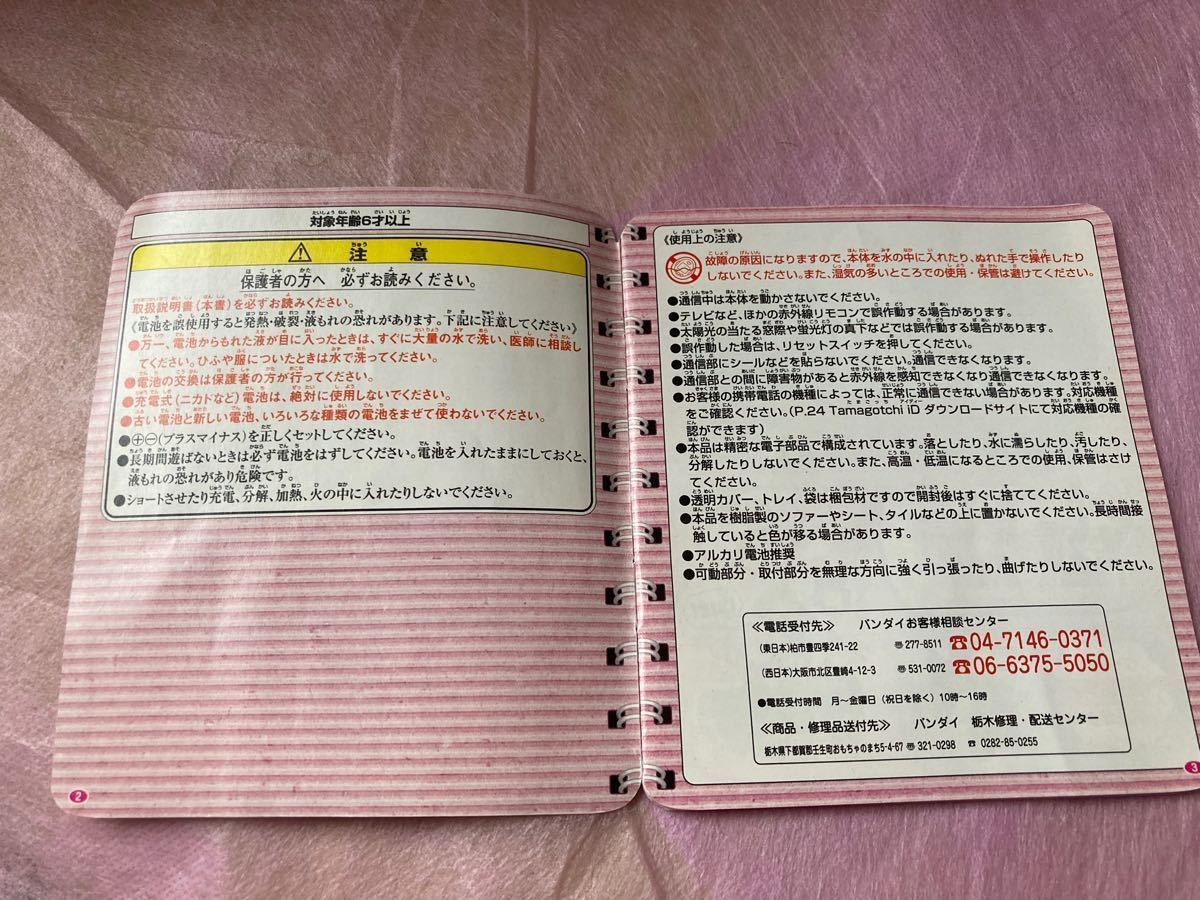 対象年齢6才以上
⚠ 注意
保護者の方へ 必ずお読みください。
取扱説明書(本書)を必ずお読みください。
《電池を誤使用すると発熱・破裂・液もれの恐れがあります。下記に注意してください》
●万一、電池からもれた液が目に入ったときは、すぐに大量の水で洗い、医師に相談
してください。ひふや服についたときは水で洗ってください。
●電池の交換は保護者の方が行ってください。
●充電式(ニカドなど)電池は、絶対に使用しないでください。
●古い電池と新しい電池、いろいろな種類の電池をまぜて使わないでください。
●⊕⊖(プラスマイナス)を正しくセットしてください。
●長期間遊ばないときは必ず電池をはずしてください。電池を入れたままにしておくと、
液もれの恐れがあり危険です。
●ショートさせたり充電、分解、加熱、火の中に入れたりしないでください。
2
《使用上の注意》
故障の原因になりますので、本体を水の中に入れたり、ぬれた手で操作したり
しないでください。また、湿気の多いところでの使用・保管は避けてください。
●通信中は本体を動かさないでください。
●テレビなど、ほかの赤外線リモコンで誤作動する場合があります。
●太陽光の当たる窓際や蛍光灯の真下などでは誤作動する場合があります。
●誤作動した場合は、リセットスイッチを押してください。
●通信部にシールなどを貼らないでください。通信できなくなります。
●通信部との間に障害物があると赤外線を感知できなくなり通信できなくなります。
●お客様の携帯電話の機種によっては、正常に通信できない場合があります。対応機種
をご確認ください。(P.24 Tamagotchi iD ダウンロードサイトにて対応機種の確
認ができます)
●本品は精密な電子部品で構成されています。落としたり、水に濡らしたり、汚したり、
分解したりしないでください。また、高温・低温になるところでの使用、保管はさけ
てください。
●透明カバー、トレイ、袋は梱包材ですので開封後はすぐに捨ててください。
●本品を樹脂製のソファーやシート、タイルなどの上に置かないでください。長時間接
触していると色が移る場合があります。
●アルカリ電池推奨
●可動部分・取付部分を無理な方向に強く引っ張ったり、曲げたりしないでください。
≪電話受付先≫ バンダイお客様相談センター
(東日本)柏市豊四季241-22 〠277-8511 ☎04-7146-0371
(西日本)大阪市北区豊崎4-12-3 〠531-0072 ☎06-6375-5050
●電話受付時間 月〜金曜日(祝日を除く)10時〜16時
≪商品・修理品送付先≫ バンダイ 栃木修理・配送センター
栃木県下都賀郡壬生町おもちゃのまち5-4-67 〠321-0298 ☎0282-85-0255
3